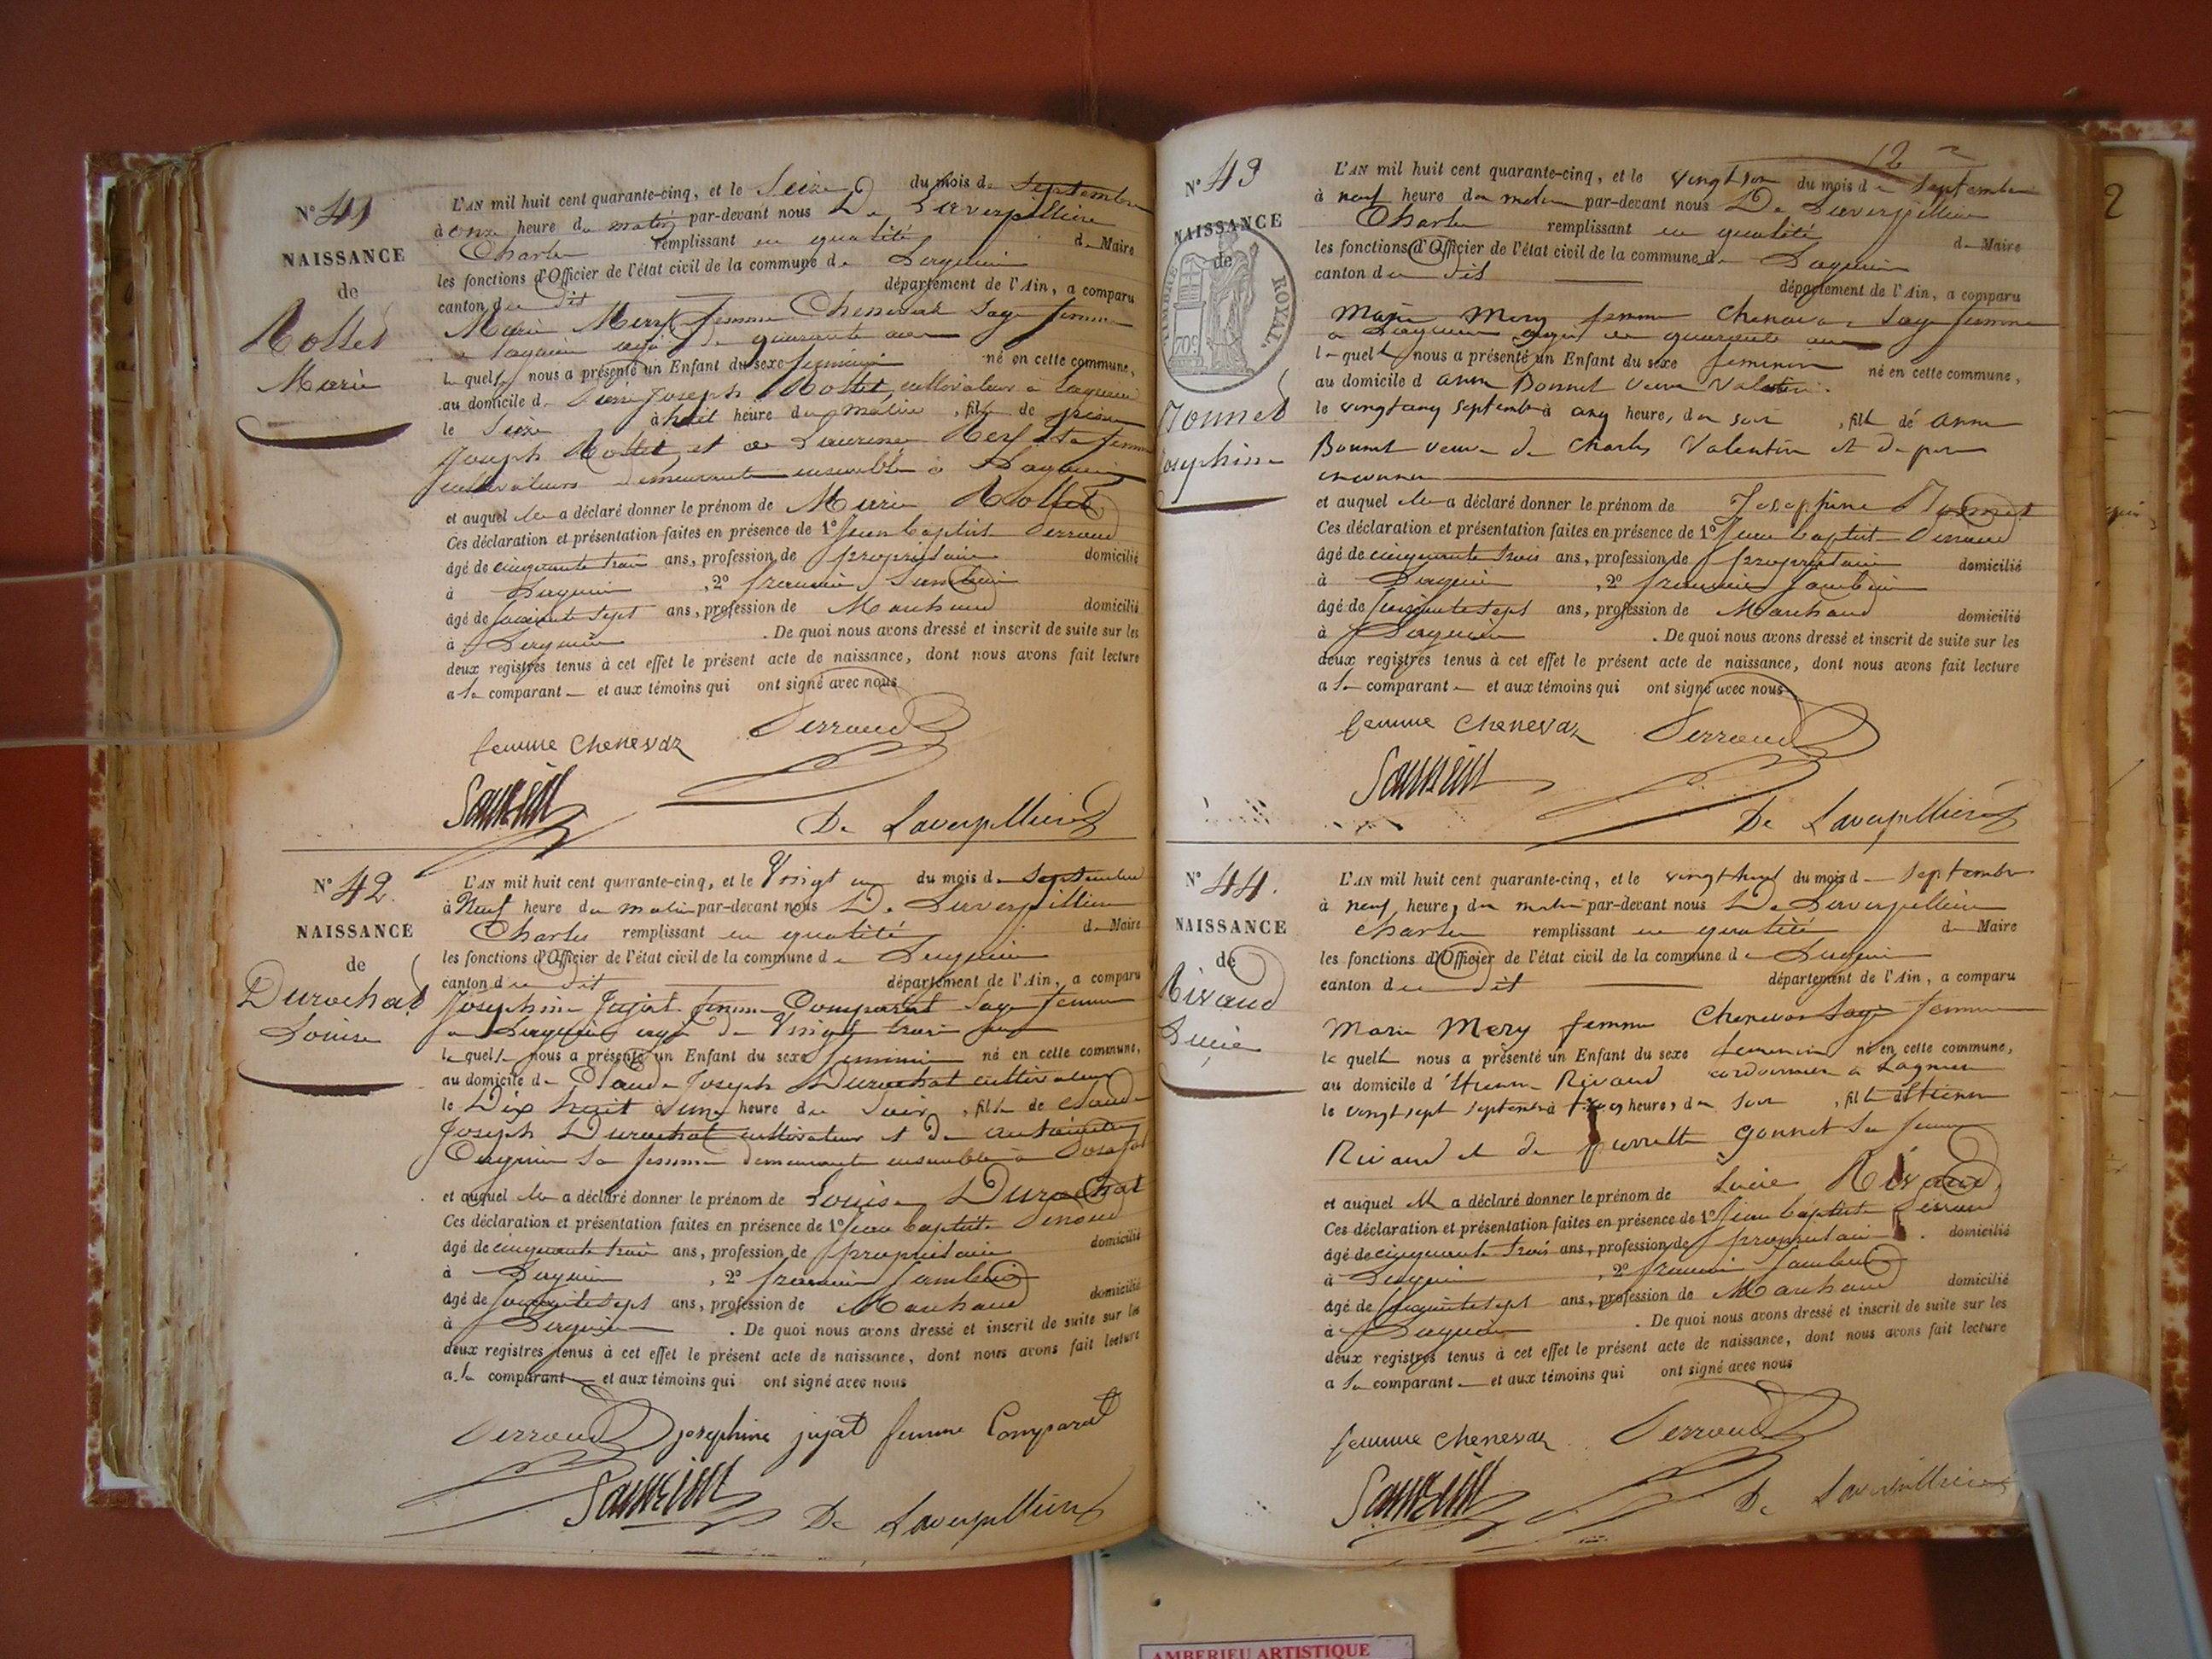 N° 41
NAISSANCE
de
Mollet
Marie
L'AN mil huit cent quarante-cinq, et le Seize du mois de Septembre
à onze heure du matin par-devant nous De Laverpillière
Charles remplissant en qualité de Maire
les fonctions d'Officier de l'état civil de la commune de Lagnieu
canton du dit département de l'Ain, a comparu
Marie Mery femme Chenevaz Sage femme
à Lagnieu agée de quarante ans
laquelle nous a présenté un Enfant du sexe feminin né en cette commune,
au domicile de Pierre Joseph Mollet, cultivateur à Lagnieu
le Seize à huit heure du matin, fille de pierre
Joseph Mollet et de Laurence sa femme
cultivateurs demeurants ensemble à Lagnieu
et auquel elle a déclaré donner le prénom de Marie Mollet
Ces déclaration et présentation faites en présence de 1° Jean baptiste Perraud
âgé de cinquante trois ans, profession de propriétaire domicilié
à Lagnieu, 2° francois
âgé de soixante sept ans, profession de Marchand domicilié
à Lagnieu. De quoi nous avons dressé et inscrit de suite sur les
deux registres tenus à cet effet le présent acte de naissance, dont nous avons fait lecture
a la comparante et aux témoins qui ont signé avec nous
femme Chenevaz Perraud
De Laverpillière
N° 42.
NAISSANCE
de
Durochat
Louise
L'AN mil huit cent quarante-cinq, et le Vingt un du mois de Septembre
à Neuf heure du matin par-devant nous De Laverpillière
Charles remplissant en qualité de Maire
les fonctions d'Officier de l'état civil de la commune de Lagnieu
canton du dit département de l'Ain, a comparu
Josephine Jujat femme Comparat Sage femme
à Lagnieu agée de Vingt trois ans
laquelle nous a présenté un Enfant du sexe feminin né en cette commune,
au domicile de Claude Joseph Durochat cultivateur
le Dix huit à une heure du Soir, fille de Claude
Joseph Durochat cultivateur et de antoinette
sa femme demeurants ensemble à
et auquel elle a déclaré donner le prénom de Louise Durochat
Ces déclaration et présentation faites en présence de 1° Jean baptiste Perraud
âgé de cinquante trois ans, profession de propriétaire domicilié
à Lagnieu, 2° francois
âgé de soixante sept ans, profession de Marchand domicilié
à Lagnieu. De quoi nous avons dressé et inscrit de suite sur les
deux registres tenus à cet effet le présent acte de naissance, dont nous avons fait lecture
a la comparante et aux témoins qui ont signé avec nous
Perraud josephine jujat femme Comparat
De Laverpillière
12
N° 43
NAISSANCE
de
TIMBRE ROYAL
Bonnet
Josephine
L'AN mil huit cent quarante-cinq, et le vingt six du mois de Septembre
à neuf heure du matin par-devant nous De Laverpillière
Charles remplissant en qualité de Maire
les fonctions d'Officier de l'état civil de la commune de Lagnieu
canton du dit département de l'Ain, a comparu
Marie Mery femme Chenevaz Sage femme
à Lagnieu agée de quarante ans
laquelle nous a présenté un Enfant du sexe feminin né en cette commune,
au domicile d anne Bonnet veuve Valentin
le vingt cinq Septembre à cinq heure, du soir, fille de anne
Bonnet veuve de Charles Valentin et de père
inconnu
et auquel elle a déclaré donner le prénom de Josephine Bonnet
Ces déclaration et présentation faites en présence de 1° Jean baptiste Perraud
âgé de cinquante trois ans, profession de propriétaire domicilié
à Lagnieu, 2° francois
âgé de soixante sept ans, profession de Marchand domicilié
à Lagnieu. De quoi nous avons dressé et inscrit de suite sur les
deux registres tenus à cet effet le présent acte de naissance, dont nous avons fait lecture
a la comparante et aux témoins qui ont signé avec nous
femme Chenevaz Perraud
De Laverpillière
N° 44.
NAISSANCE
de
Rivaud
Lucie
L'AN mil huit cent quarante-cinq, et le vingt huit du mois de Septembre
à neuf heure, du matin par-devant nous De Laverpillière
Charles remplissant en qualité de Maire
les fonctions d'Officier de l'état civil de la commune de Lagnieu
canton du dit département de l'Ain, a comparu
Marie Mery femme Chenevaz Sage femme
laquelle nous a présenté un Enfant du sexe feminin né en cette commune,
au domicile d'Etienne Rivaud cordonnier à Lagnieu
le vingt sept septembre à heure, du soir, fille d'Etienne
Rivaud et de pierrette Gonnet sa femme
et auquel elle a déclaré donner le prénom de Lucie Rivaud
Ces déclaration et présentation faites en présence de 1° Jean baptiste Perraud
âgé de cinquante trois ans, profession de propriétaire domicilié
à Lagnieu, 2° francois
âgé de soixante sept ans, profession de Marchand domicilié
à Lagnieu. De quoi nous avons dressé et inscrit de suite sur les
deux registres tenus à cet effet le présent acte de naissance, dont nous avons fait lecture
a la comparante et aux témoins qui ont signé avec nous
femme Chenevaz Perraud
De Laverpillière
2
AMBERIEU ARTISTIQUE